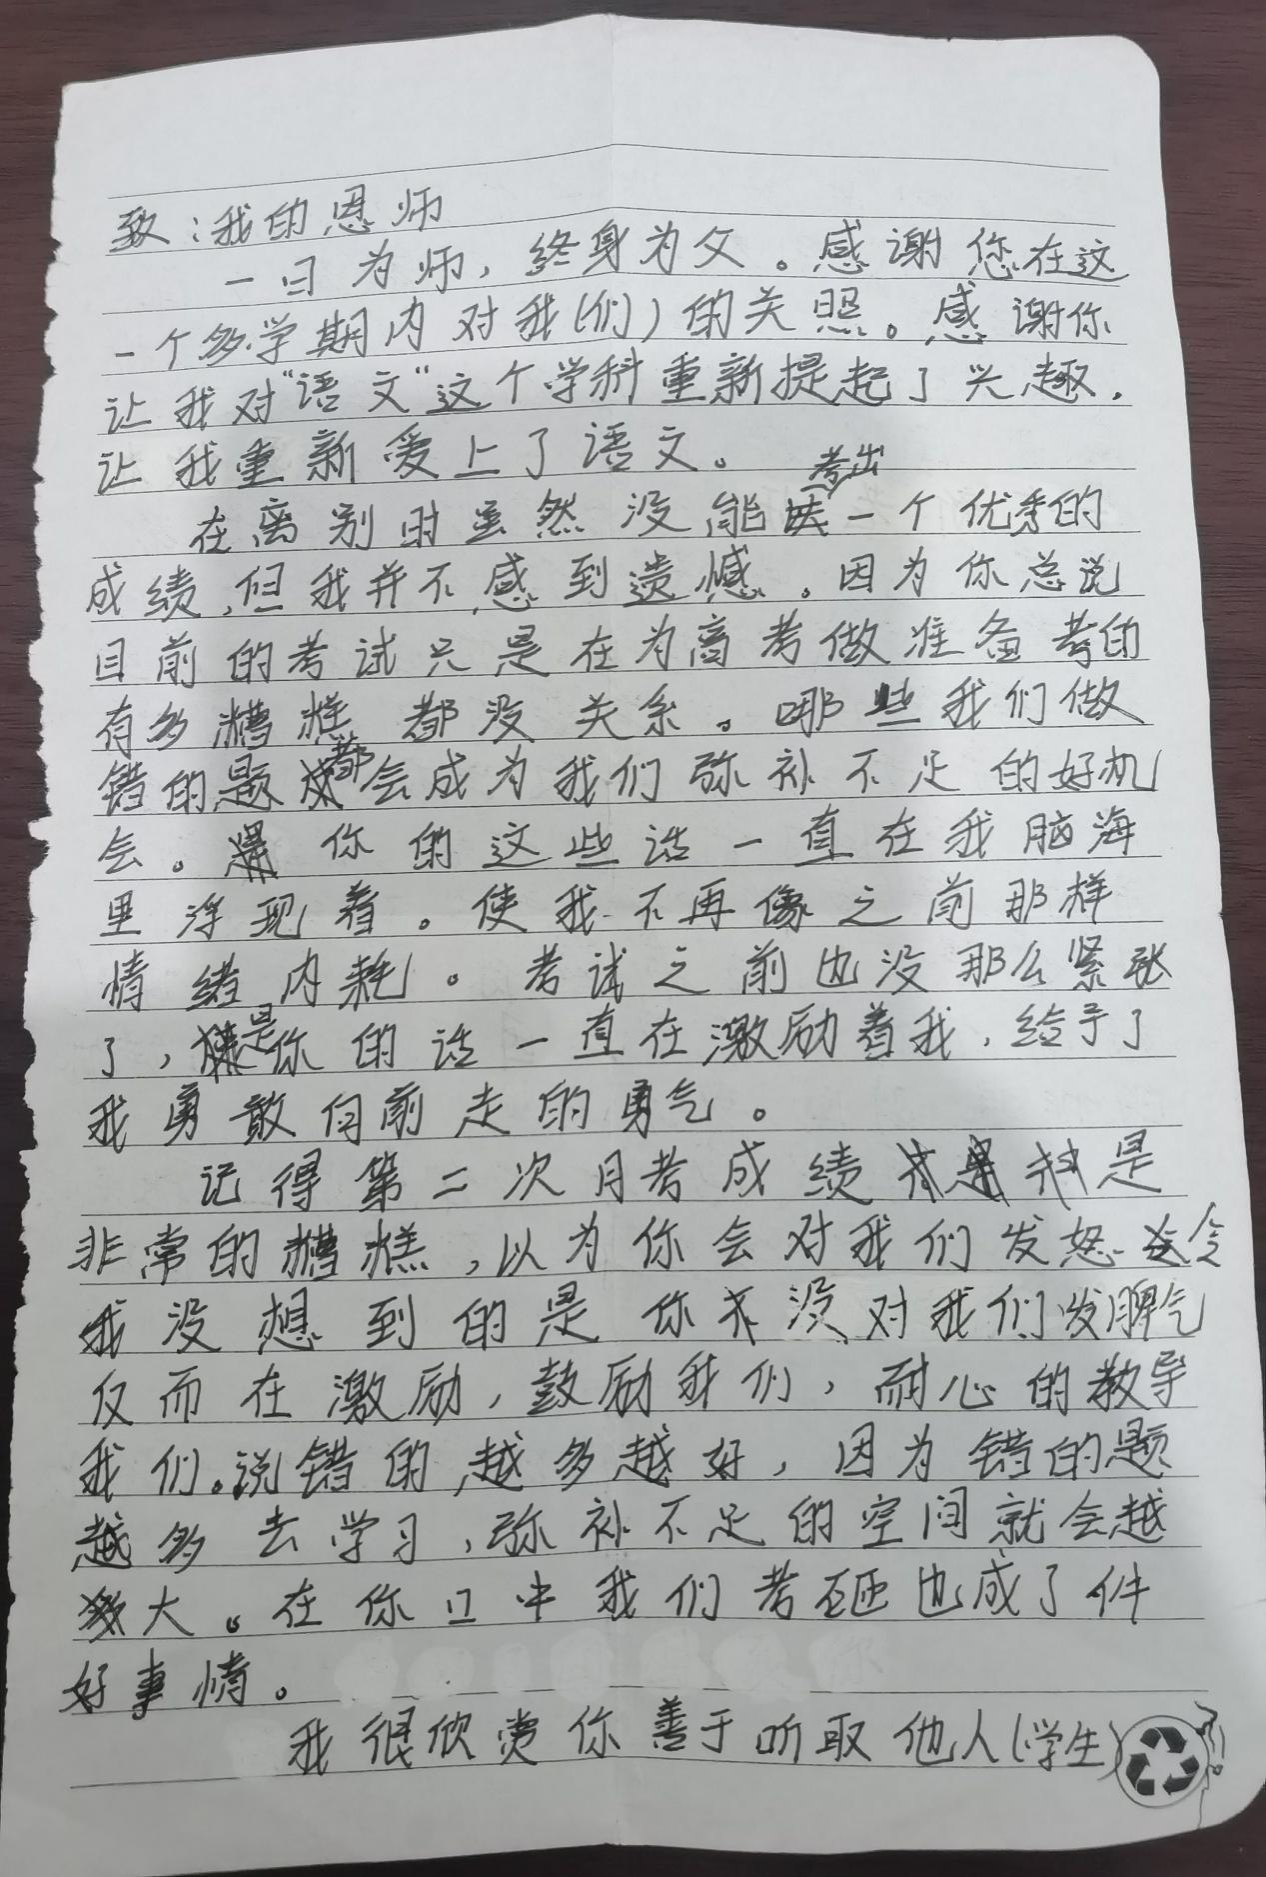 致：我的恩师
一日为师，终身为父。感谢您在这
一个多学期内对我(们)的关照。感谢你
让我对“语文”这个学科重新提起了兴趣，
让我重新爱上了语文。
在离别时虽然没能考出一个优秀的
成绩，但我并不感到遗憾。因为你总说
目前的考试只是在为高考做准备考的
有多糟糕都没关系。哪些我们做
错的题都会成为我们弥补不足的好机
会。你的这些话一直在我脑海
里浮现着。使我不再像之前那样
情绪内耗。考试之前也没那么紧张
了，是你的话一直在激励着我，给予了
我勇敢向前走的勇气。
记得第二次月考成绩是
非常的糟糕，以为你会对我们发怒令
我没想到的是你没对我们发脾气
反而在激励，鼓励我们，耐心的教导
我们。说错的越多越好，因为错的题
越多去学习，弥补不足的空间就会越
大。在你口中我们考砸也成了件
好事情。
我很欣赏你善于听取他人(学生)